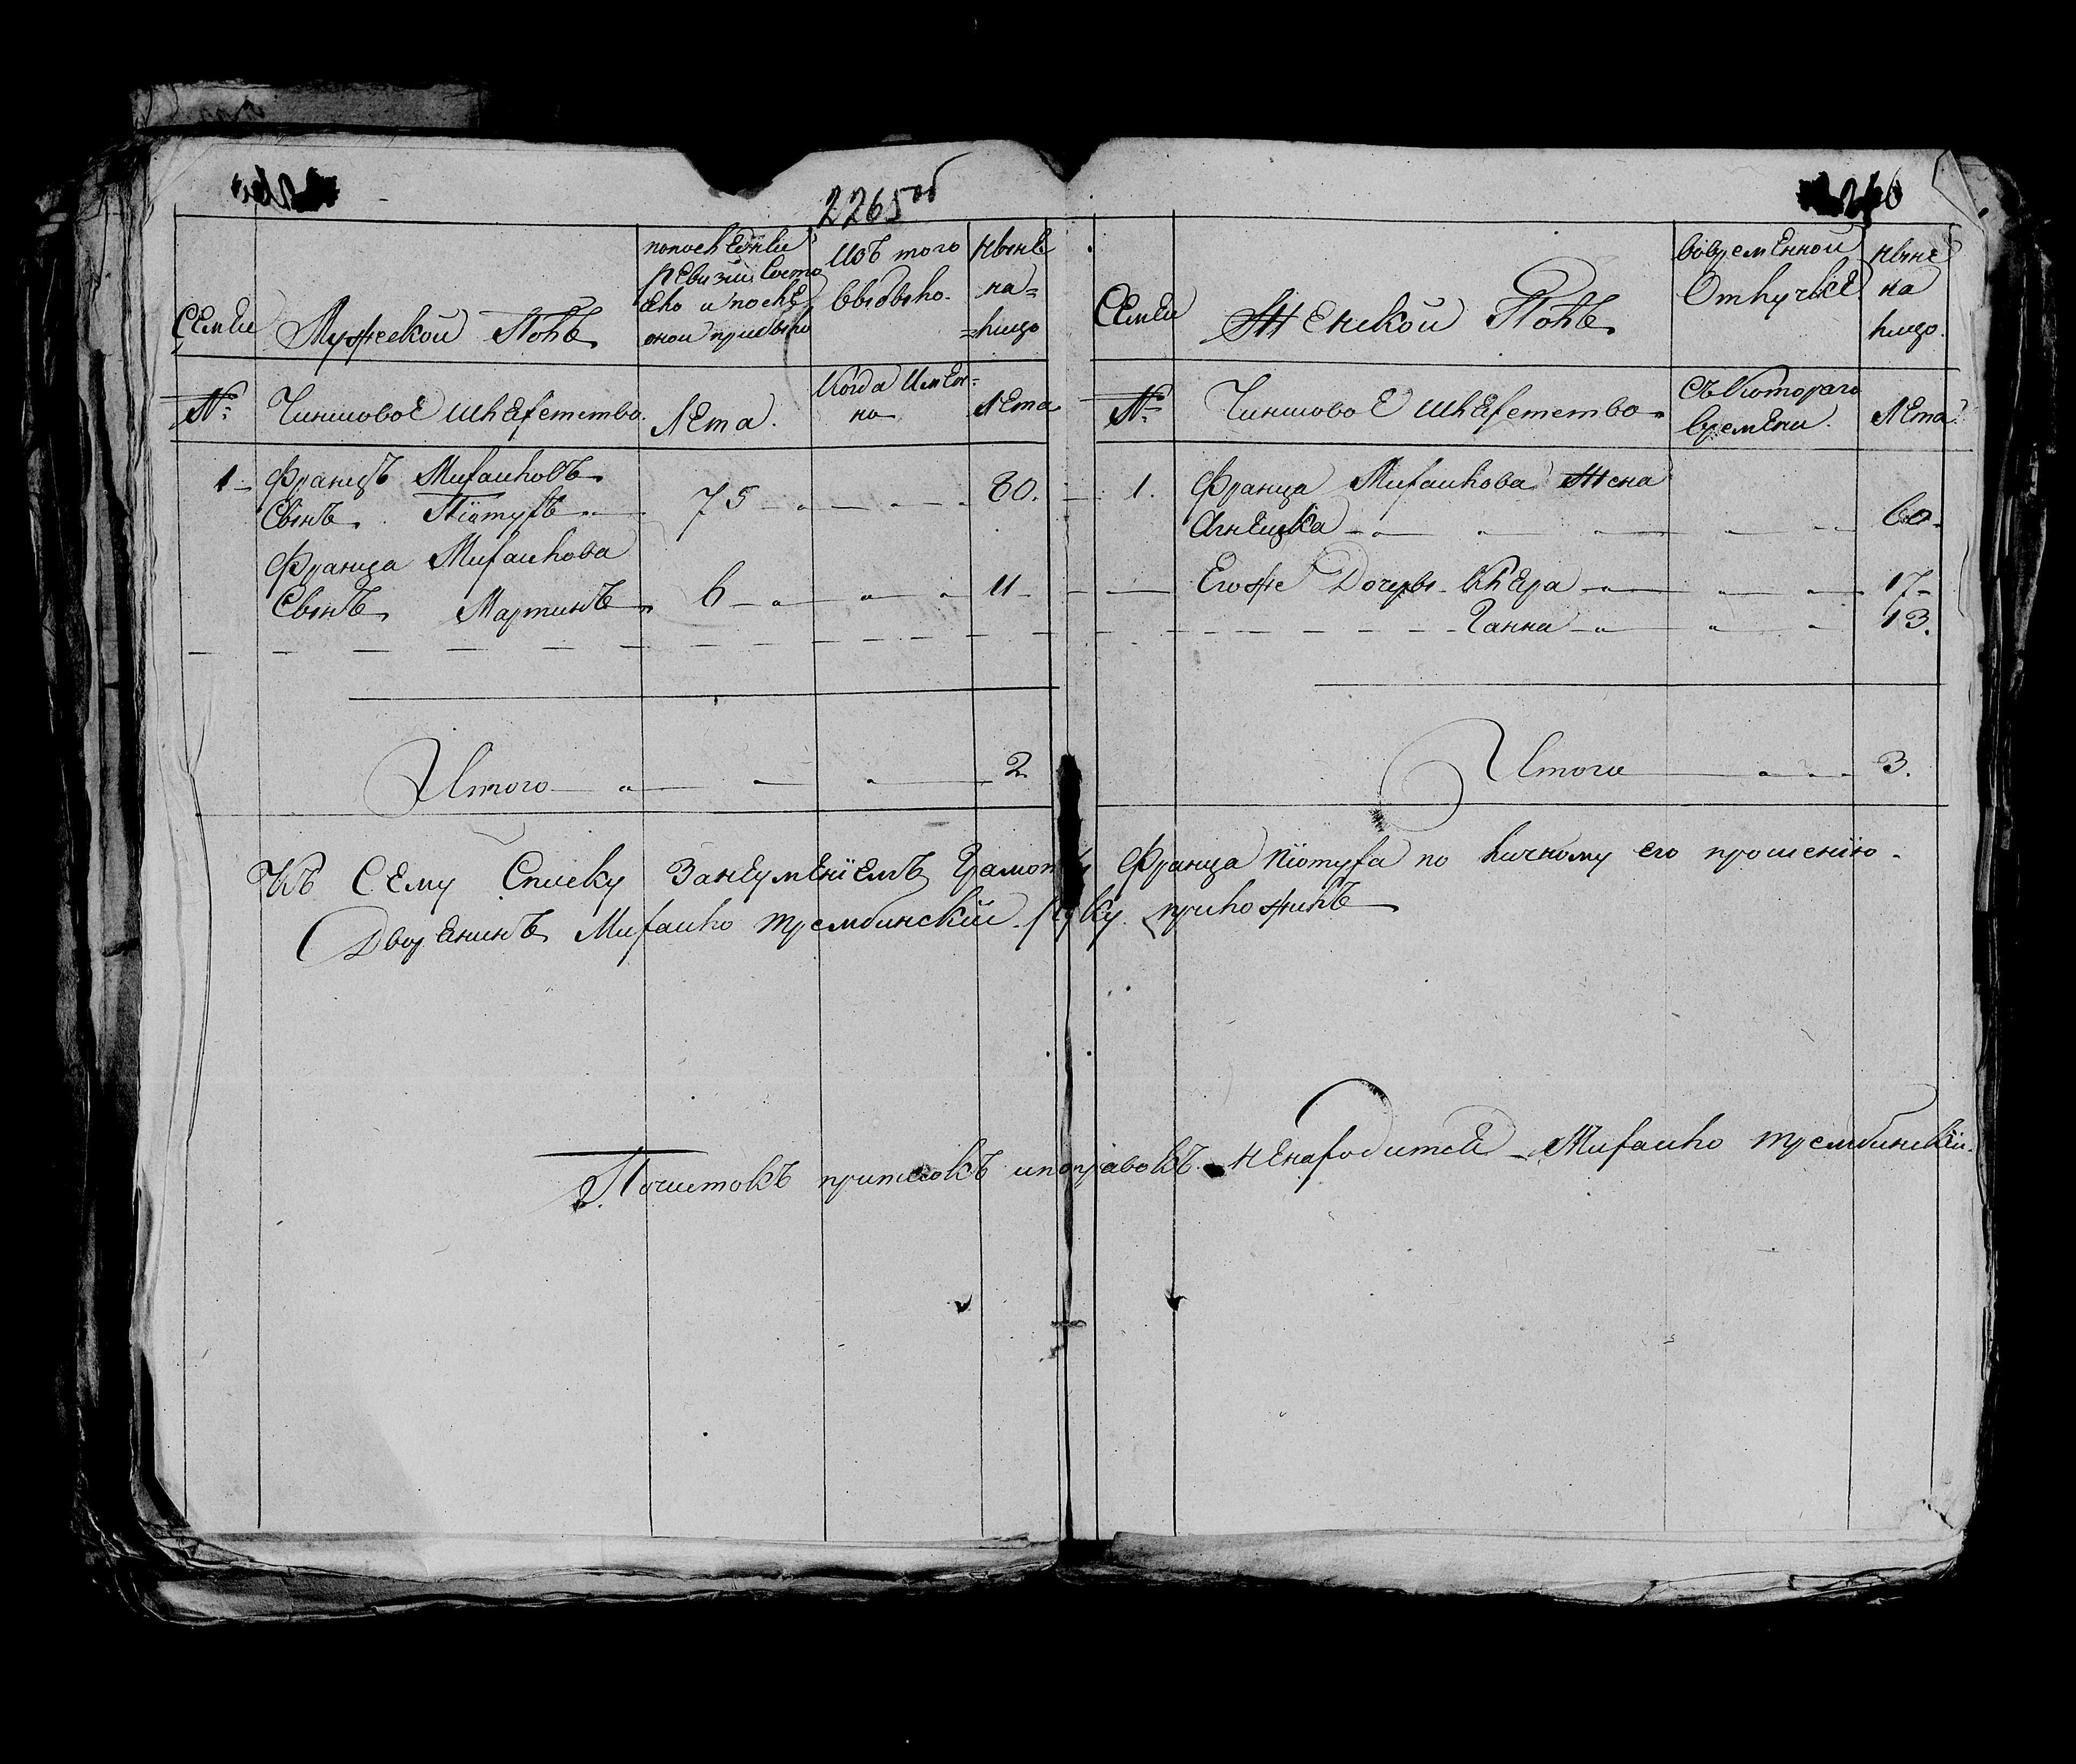 2265об
266
Семьи
Мужеской Полъ
попослѣдней
ревизии Состо
яло и послѣ
оной прибыло
Изъ того
выбыло.
нынѣ
на=
=лицо
№
Чиншовое шляхетство.
Лета.
Когда Имен=
но
Лета
1
Францъ Михайловъ
Сынъ Піотухъ
75
80.
Франца Михайлова
Сынъ Мартинъ
6
11
Итого
2
Семьи
Женской Полъ
Вовременной
Отлучке
ныне
на
лицо.
№
Чиншовое шляхетство
Съ Котораго
Времени.
Лета
1.
Франца Михайлова Жена
Агнешка
60
Егоже Дочери Клера
17
Ганна
13.
Итого
3.
Къ Сему Списку Занеуменіемъ Грамоты Франца Піотуха по личному его прошенію
Дворенинъ Михайло Трембинскій руку приложилъ
Почистокъ приписокъ ипоправокъ ненаходится Михайло Трембинскій